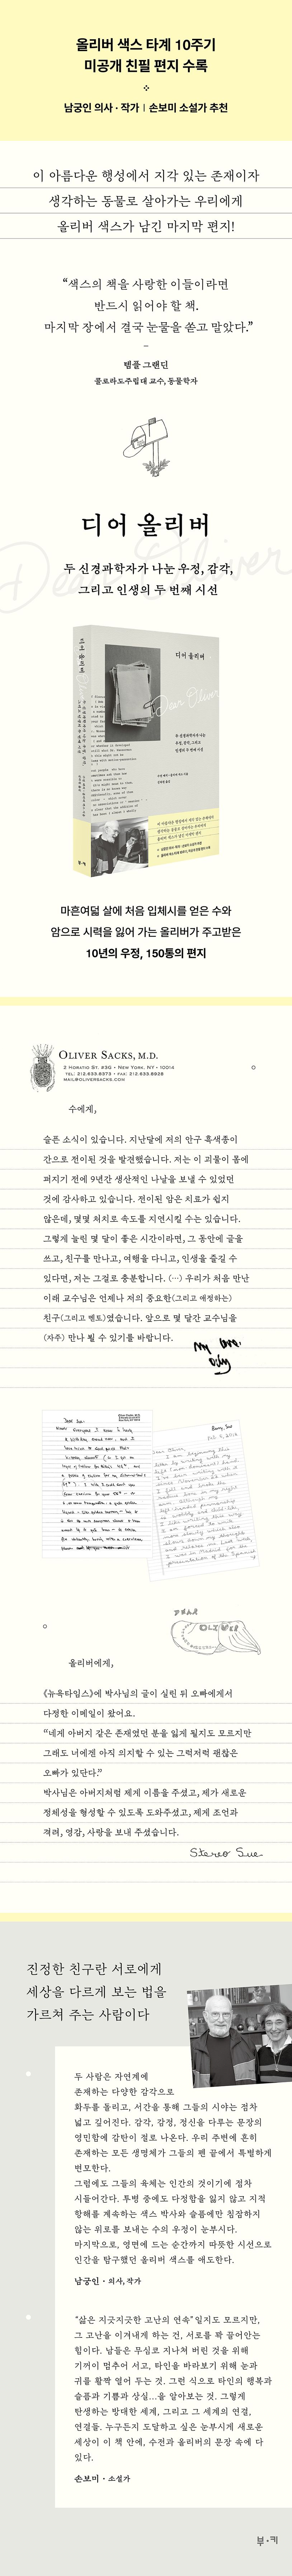 올리버 색스 타계 10주기
미공개 친필 편지 수록
남궁인 의사 · 작가 | 손보미 소설가 추천
이 아름다운 행성에서 지각 있는 존재이자
생각하는 동물로 살아가는 우리에게
올리버 색스가 남긴 마지막 편지!
“색스의 책을 사랑한 이들이라면
반드시 읽어야 할 책.
마지막 장에서 결국 눈물을 쏟고 말았다.”
템플 그랜딘
콜로라도주립대 교수, 동물학자
Dear Oliver
디어 올리버
두 신경과학자가 나눈 우정, 감각,
그리고 인생의 두 번째 시선
디어 올리버
Dear Oliver
두 신경과학자가 나눈
우정, 감각, 그리고
인생의 두 번째 시선
마흔여덟 살에 처음 입체시를 얻은 수와
암으로 시력을 잃어 가는 올리버가 주고받은
10년의 우정, 150통의 편지
OLIVER SACKS, M.D.
2 HORATIO ST. #3G • NEW YORK, NY • 10014
TEL: 212.633.8373 • FAX: 212.633.8928
MAIL@OLIVERSACKS.COM
수에게,
슬픈 소식이 있습니다. 지난달에 저의 안구 흑색종이
간으로 전이된 것을 발견했습니다. 저는 이 괴물이 몸에
퍼지기 전에 9년간 생산적인 나날을 보낼 수 있었던
것에 감사하고 있습니다. 전이된 암은 치료가 쉽지
않은데, 몇몇 처치로 속도를 지연시킬 수는 있습니다.
그렇게 늘린 몇 달이 좋은 시간이라면, 그 동안에 글을
쓰고, 친구를 만나고, 여행을 다니고, 인생을 즐길 수
있다면, 저는 그걸로 충분합니다. (…) 우리가 처음 만난
이래 교수님은 언제나 저의 중요한(그리고 애정하는)
친구(그리고 멘토)였습니다. 앞으로 몇 달간 교수님을
(자주) 만나 뵐 수 있기를 바랍니다.
Dear Sue:
Dear Oliver,
DEAR
OLIVER
올리버에게,
《뉴욕타임스》에 박사님의 글이 실린 뒤 오빠에게서
다정한 이메일이 왔어요.
“네게 아버지 같은 존재였던 분을 잃게 될지도 모르지만
그래도 너에겐 아직 의지할 수 있는 그럭저럭 괜찮은
오빠가 있단다.”
박사님은 아버지처럼 제게 이름을 주셨고, 제가 새로운
정체성을 형성할 수 있도록 도와주셨고, 제게 조언과
격려, 영감, 사랑을 보내 주셨습니다.
Stereo Sue
진정한 친구란 서로에게
세상을 다르게 보는 법을
가르쳐 주는 사람이다
두 사람은 자연계에
존재하는 다양한 감각으로
화두를 돌리고, 서간을 통해 그들의 시야는 점차
넓고 깊어진다. 감각, 감정, 정신을 다루는 문장의
영민함에 감탄이 절로 나온다. 우리 주변에 흔히
존재하는 모든 생명체가 그들의 펜 끝에서 특별하게
변모한다.
그럼에도 그들의 육체는 인간의 것이기에 점차
시들어간다. 투병 중에도 다정함을 잃지 않고 지적
항해를 계속하는 색스 박사와 슬픔에만 침잠하지
않는 위로를 보내는 수의 우정이 눈부시다.
마지막으로, 영면에 드는 순간까지 따뜻한 시선으로
인간을 탐구했던 올리버 색스를 애도한다.
남궁인 • 의사, 작가
“삶은 지긋지긋한 고난의 연속”일지도 모르지만,
그 고난을 이겨내게 하는 건, 서로를 꽉 끌어안는
힘이다. 남들은 무심코 지나쳐 버린 것을 위해
기꺼이 멈추어 서고, 타인을 바라보기 위해 눈과
귀를 활짝 열어 두는 것. 그런 식으로 타인의 행복과
슬픔과 기쁨과 상실...을 알아보는 것. 그렇게
탄생하는 방대한 세계, 그리고 그 세계의 연결,
연결들. 누구든지 도달하고 싶은 눈부시게 새로운
세상이 이 책 안에, 수전과 올리버의 문장 속에 다
있다.
손보미 • 소설가
부·키